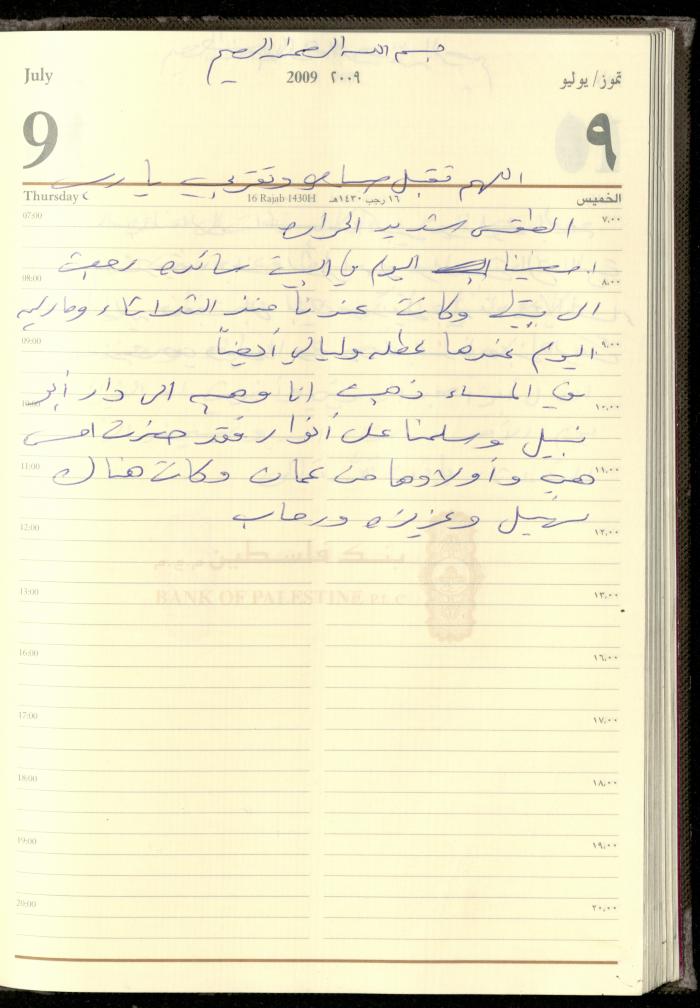 بسم الله الرحمن الرحيم
July 2009 ٢٠٠٩ تموز/يوليو
9 ٩
اللهم تقبل صيامي وتقربي يا رب
Thursday 16 Rajab 1430H ١٦ رجب ١٤٣٠هـ الخميس
07:00 ٧,٠٠
الطقس شديد الحراره
امضينا اليوم في البيت سائده رجعت
08:00 ٨,٠٠
الى بيتها وكانت عندنا منذ الثلاثاء وماريه
09:00 ٩,٠٠
اليوم عندها عطله وليالي أيضاً
في المساء ذهبت انا وهبه الى دار أبو
10:00 ١٠,٠٠
نبيل وسلمنا على أنوار فقد حضرت امس
11:00 ١١,٠٠
هي وأولادها من عمان وكانت هناك
نهيل وعزيزه ورحاب
12:00 ١٢,٠٠
بنك فلسطين م.ع.م
13:00 ١٣,٠٠
BANK OF PALESTINE P.L.C
16:00 ١٦,٠٠
17:00 ١٧,٠٠
18:00 ١٨,٠٠
19:00 ١٩,٠٠
20:00 ٢٠,٠٠